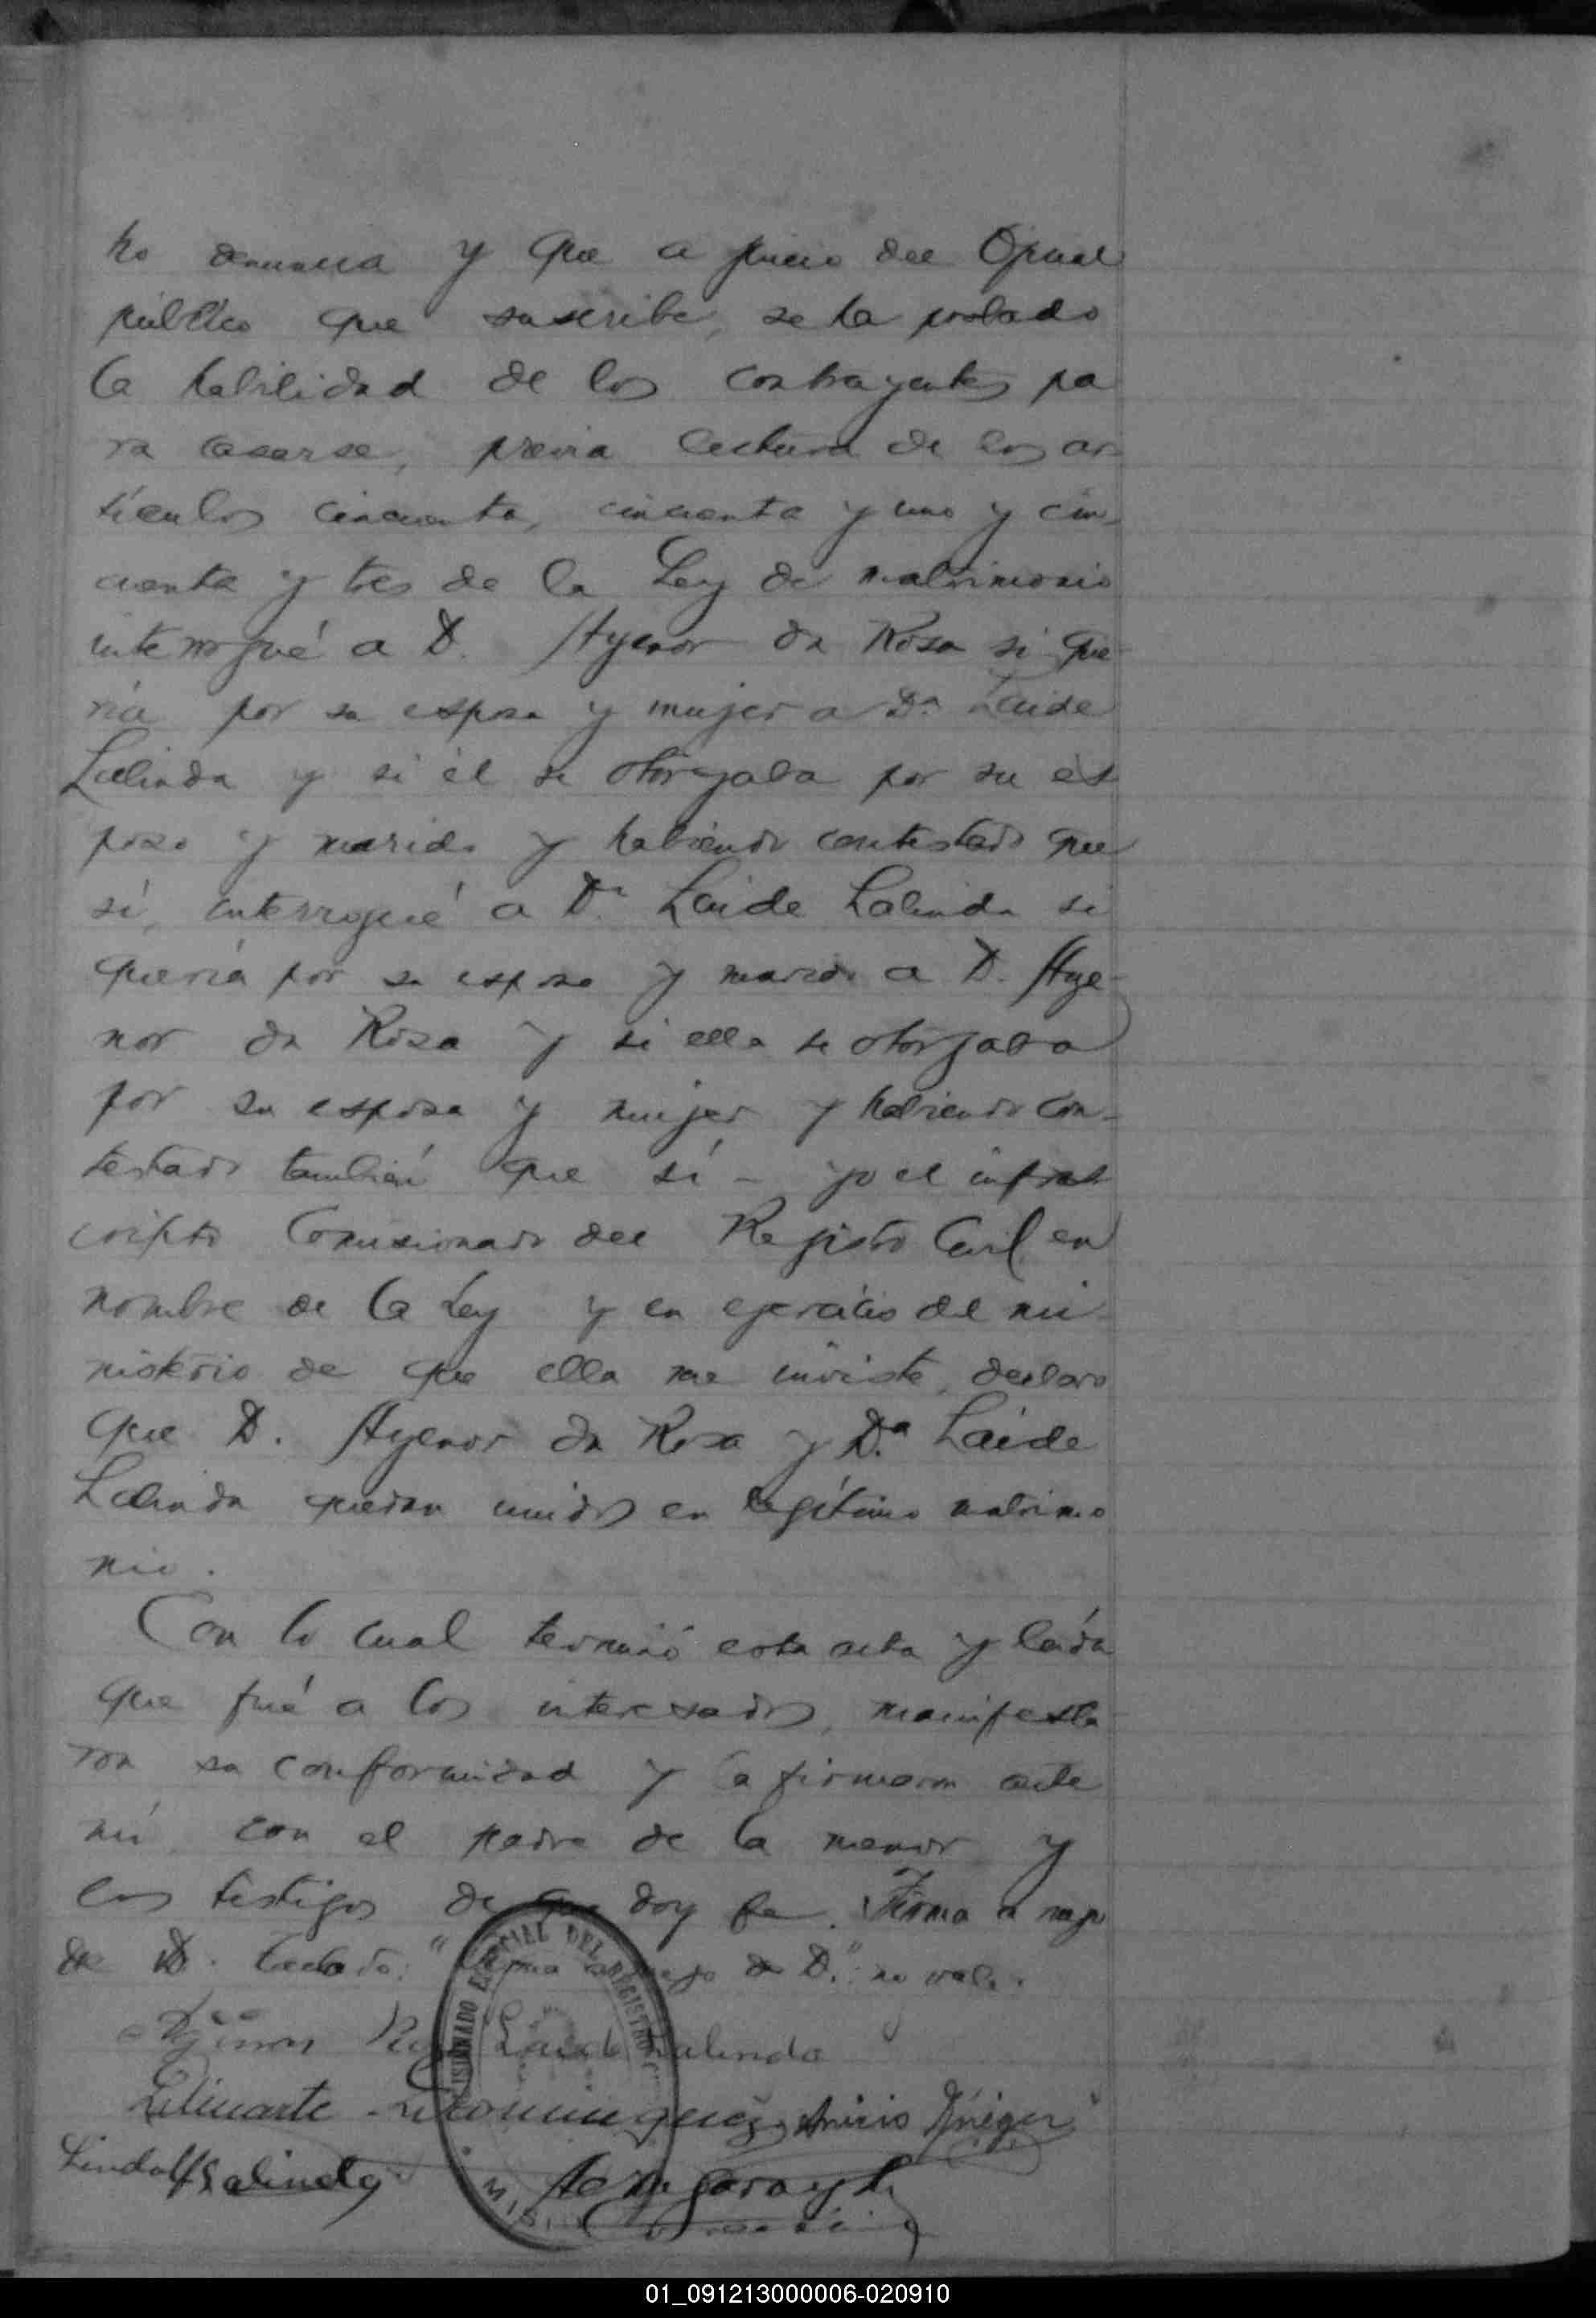 ho denuncia y que a juicio del Oficial
público que suscribe, se ha probado
la habilidad de los contrayentes pa
ra casarse, previa lectura de los ar
tículos cincuenta, cincuenta y uno y cin
cuenta y tres de la Ley de matrimonio
interrogué a D. Agenor da Rosa si que
ría por su esposa y mujer a Dª Laide
Lalinda y si él se otorgaba por su es
poso y marido y habiendo contestado que
sí, interrogué a Dª Laide Lalinda si
quería por su esposo y marido a D. Age-
nor da Rosa y si ella se otorgaba
por su esposa y mujer y habiendo con-
testado también que sí - yo el infras
cripto Comisionado del Registro Civil en
nombre de la Ley y en ejercicio del mi
nisterio de que ella me inviste, declaro
que D. Agenor da Rosa y D.ª Laide
Lalinda quedan unidos en legítimo matrimo
nio.
Con lo cual terminó esta acta y leída
que fué a los interesados, manifesta
ron su conformidad y la firmaron ante
mí con el padre de la menor y
los testigos de que doy fe. Firma a ruego
de D. Testado: "Firma a ruego de D." no vale.
Laide Lalinda
COMISIONADO ESPECIAL DEL REGISTRO
01_091213000006-020910